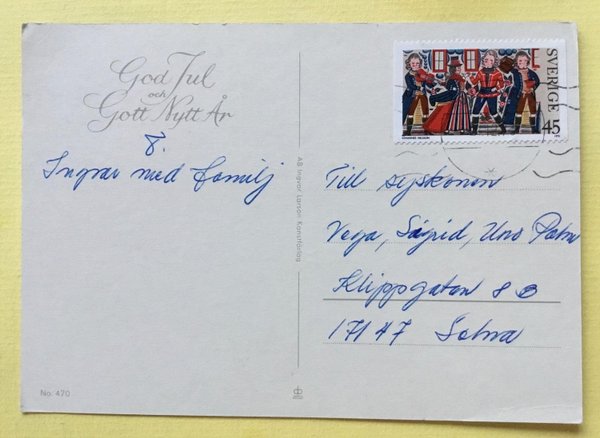 God Jul
och
Gott Nytt År
Ingvar med familj
No. 470
AB Ingvar Larson Konstförlag
SVERIGE
45
Till syskonen
Vega, Sigrid, Uno Palm
Klippgatan 8 B
171 47 Solna